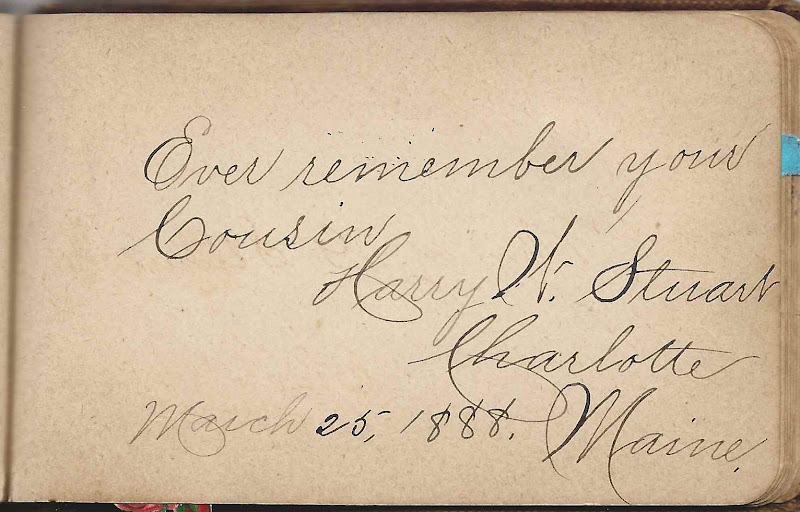 Ever remember your
Cousin
Harry W. Stuart
Charlotte
Maine.
March 25, 1888.